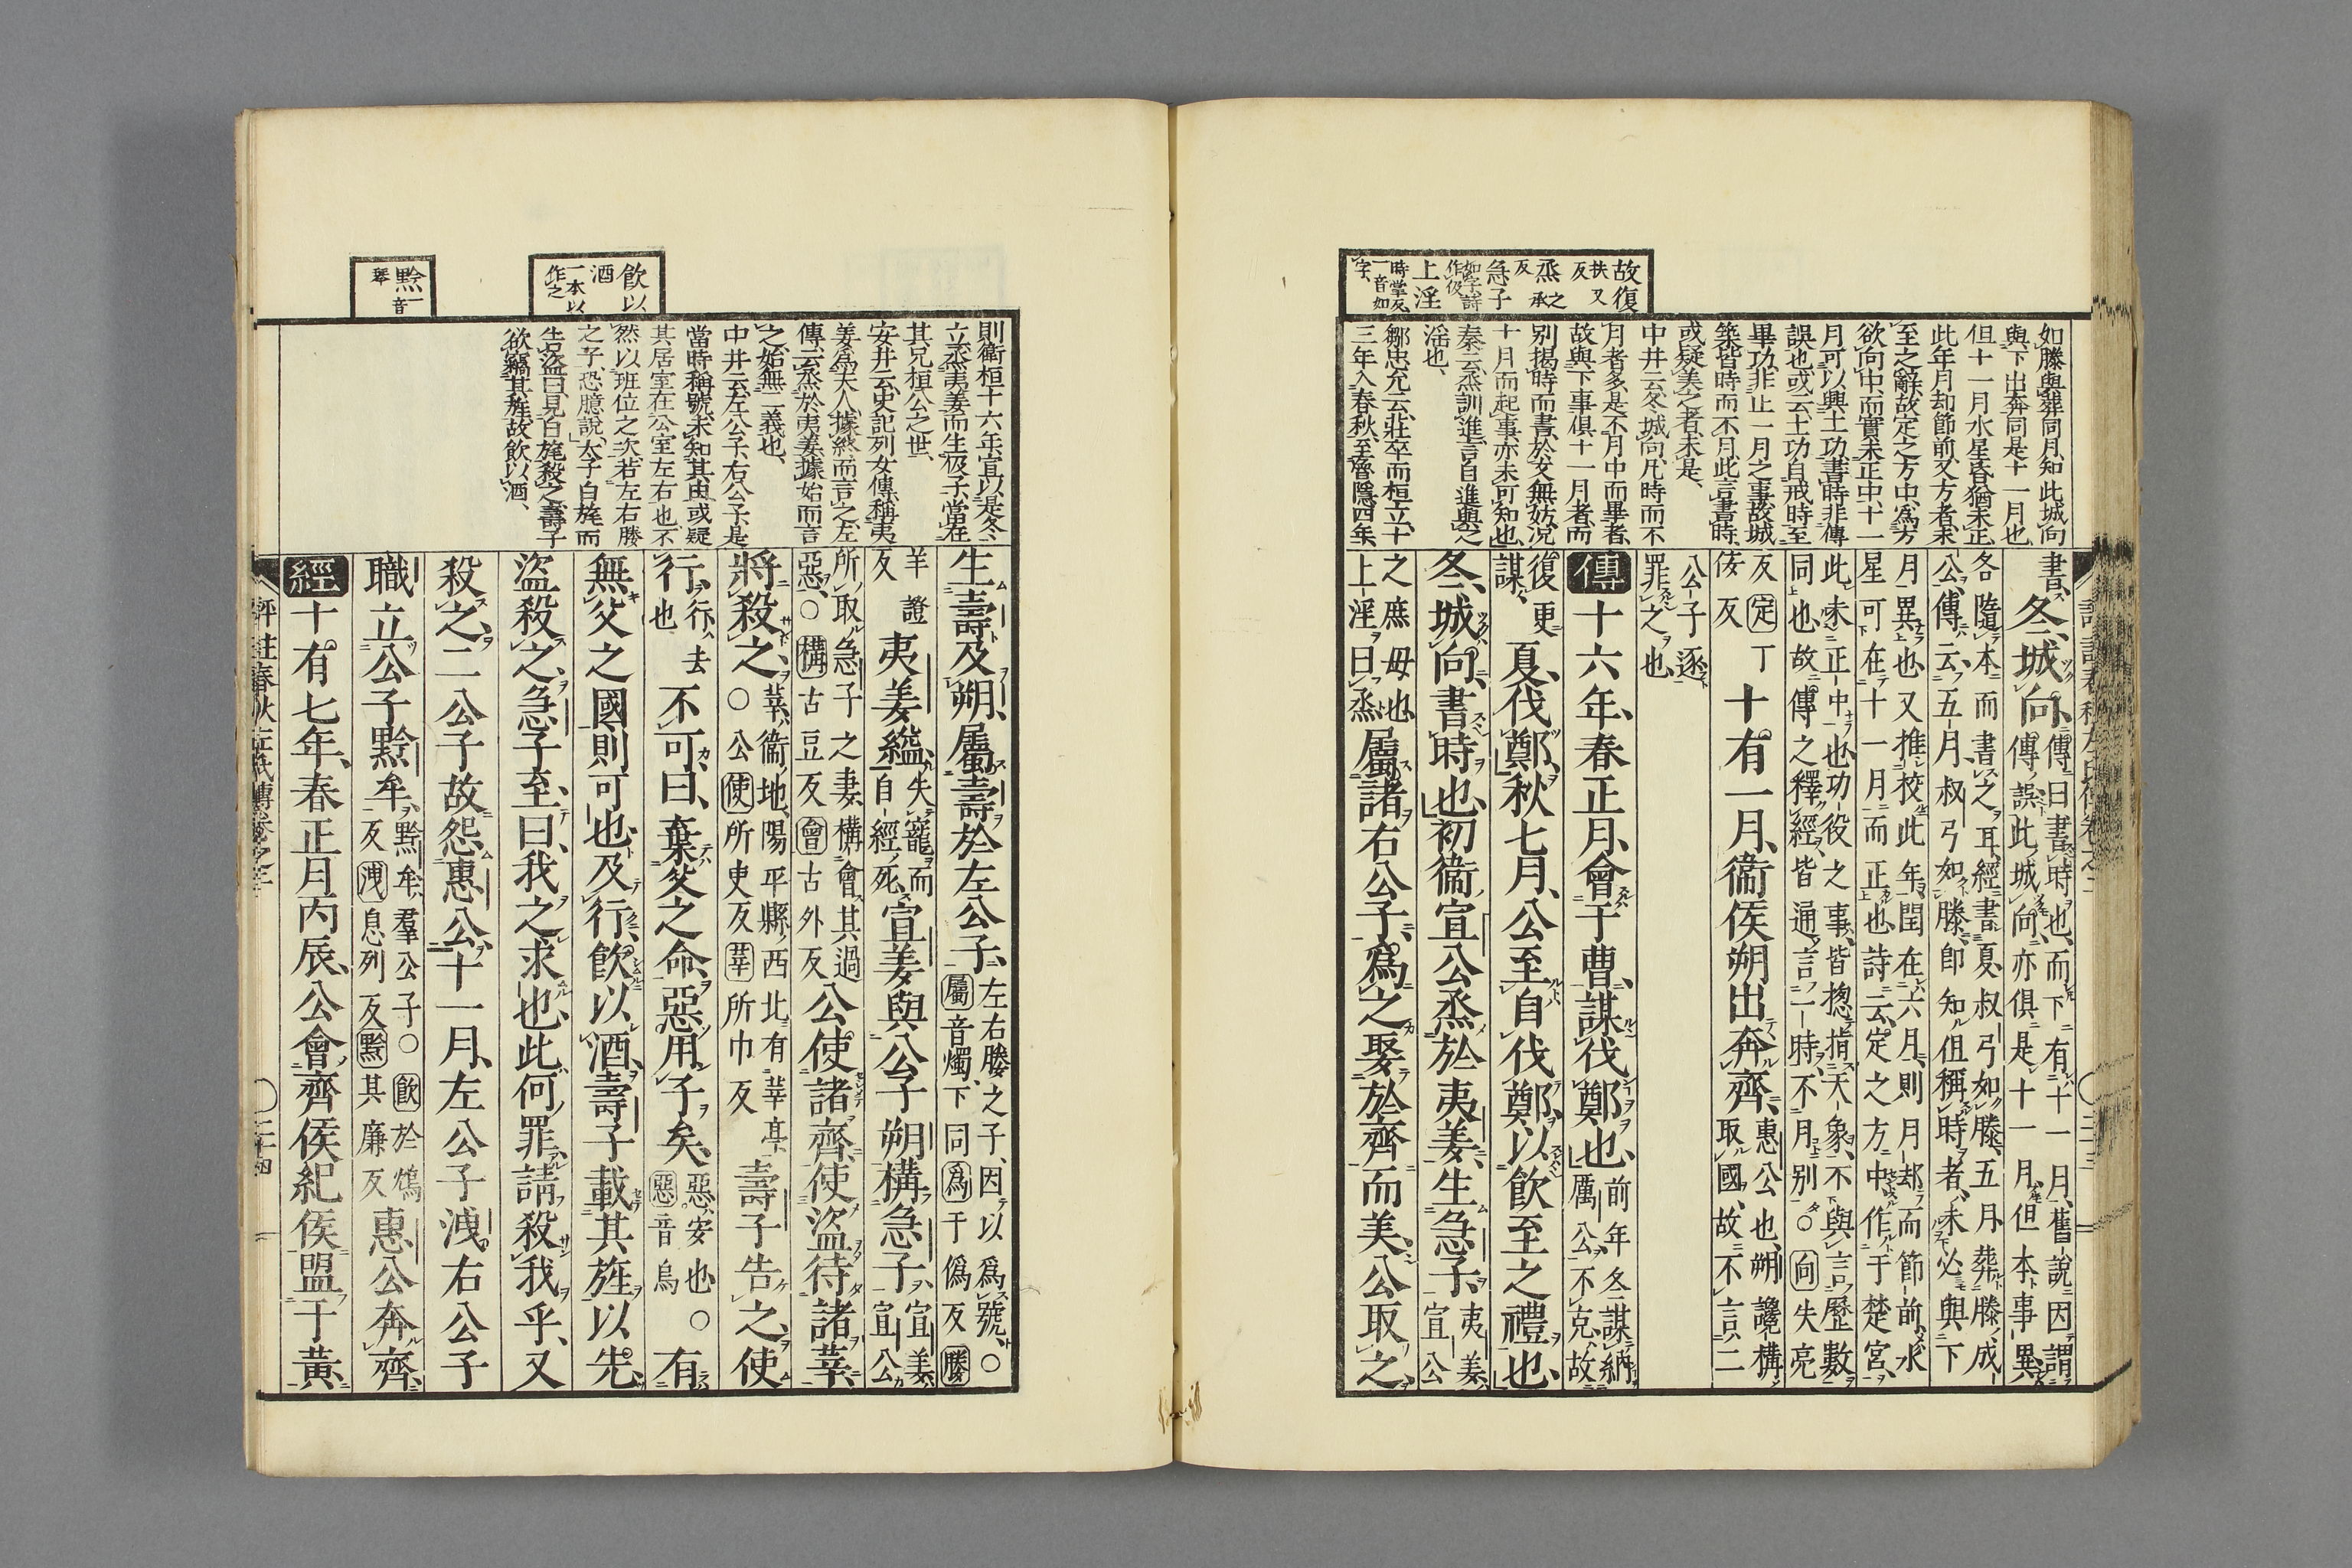 故復
扶又反
烝 之承反
急子
如字詩作伋
上淫
時掌反一音如字
如滕與葬同月知此城向
與下出奔同是十一月也
但十一月水星昏猶未正
此年月却節前又方者未
至之辭故定之方中爲方
欲向中而實未正中十一
月可以興土功書時非傳
誤也或云土功自戒時至
畢功非止一月之事故城
築皆時而不月此言書時
或疑美之者未是、
中井云冬城向凡時而不
月者多是不月中而畢者
故與下事俱十一月者而
別揭時而書於文無妨況
十月而起事亦未可知也
秦云烝訓進言自進與之
淫也、
鄒忠允云莊卒而桓立十
三年入春秋至魯隱四年
書、冬、城向、傳曰書時也、而下有十一月、舊說因謂傳誤此城向亦俱是十一月、但本事異
各隨本而書之耳、經書夏叔弓如滕、五月葬滕成公、傳云、五月、叔弓如滕、卽知但稱時者、未必與下
月異也、又推校此年閏在六月、則月却而節前、水星可在十一月而正也、詩云、定之方中、作于楚宮、
此未正中也、功役之事、皆揔指天象、不與言歷數同也、故傳之釋經、皆通言一時、不月別○向失亮
反定丁佞反十有一月、衞侯朔出奔齊、惠公也、朔讒構取國、故不言二
公子逐罪之也
傳十六年、春正月、會于曹、謀伐鄭也、前年冬謀納厲公、不克、故
復更謀、夏、伐鄭、秋七月、公至自伐鄭、以飮至之禮也、
冬、城向、書時也、初衞宣公烝於夷姜、生急子、夷姜宣公
之庶母也、上淫曰烝屬諸右公子、爲之娶於齊而美、公取之、
評註春秋左氏傳卷之二
二十三
飮以
酒
一本以
作之
黔 音
琴
則衞桓十六年宣以是冬
立烝夷姜而生伋子當在
其兄桓公之世、
安井云史記列女傳稱夷
姜爲夫人據終而言之左
傳云烝於夷姜據始而言
之始無二義也、
中井云左公子右公子是
當時稱號未知其由或疑
其居室在公室左右也不
然以班位之次若左右滕
之子恐臆說、太子白旄而
告盜曰見白旄殺之壽子
欲竊其旄故飮以酒、
生壽及朔、屬壽於左公子、左右媵之子、因以爲號、○屬音燭、下同爲于僞反媵
羊證反夷姜縊、失寵而自經死、宣姜與公子朔構急子、宣姜宣公
所取急子之妻、構會其過惡、○構古豆反會古外反公使諸齊、使盜待諸莘、
將殺之、莘、衞地、陽平縣西北有莘亭、○公使所吏反莘所巾反壽子告之、使
行、行、去也不可曰、棄父之命、惡用子矣、惡、安也○惡音烏有
無父之國則可也、及行、飮以酒、壽子載其旌以先、
盜殺之、急子至、曰、我之求也、此何罪、請殺我乎、又
殺之、二公子故怨惠公、十一月、左公子洩右公子
職立公子黔牟、黔牟、羣公子○飮於鴆反洩息列反黔其廉反惠公奔齊、
經十有七年、春正月丙辰、公會齊侯紀侯盟于黃、
評註春秋左氏傳卷之二
二十四